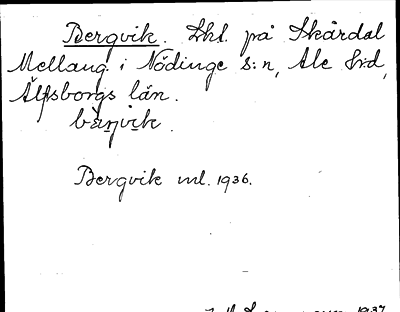 Bergvik. Lht. på Skårdal
Mellang. i Nödinge s:n, Ale hd,
Älfsborgs län.
bæ̀ŋvik.
Bergvik ml. 1936.
1937